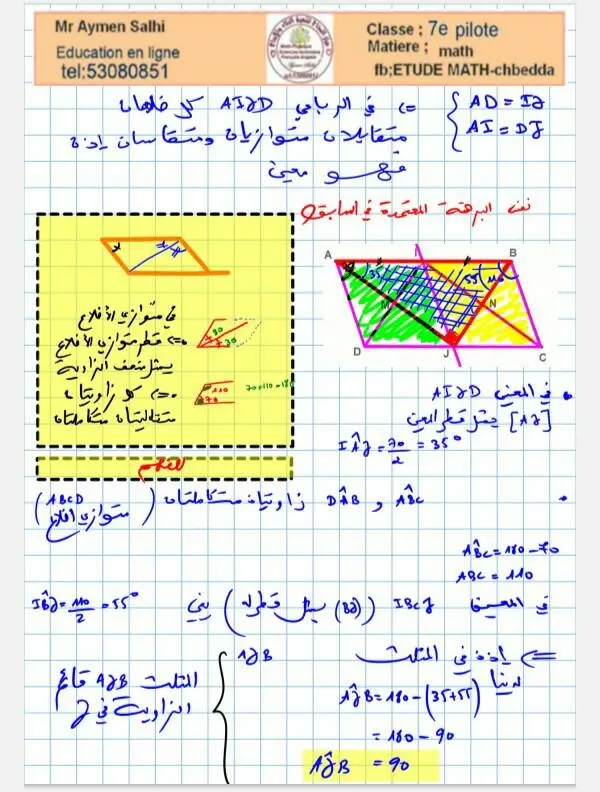 Mr Aymen Salhi
Education en ligne
tel:53080851
Classe ; 7e pilote
Matiere ; math
fb;ETUDE MATH-chbedda
AD = IJ
AI = DJ
=> في الرباعي AIJD كل ضلعان
متقابلان متوازيان ومتقايسان إذن
فهو معين
نفس البرهنة المعتمدة في السابق
A
I
B
35
55
M
N
D
J
C
في متوازي الأضلاع
=> قطر متوازي الأضلاع
يمثل منصف الزاوية
=> كل زاويتان
متتاليتان متكاملتان
30
30
110
70
70+110=180
في المعين AIJD
[AJ] يمثل قطر المعين
IÂJ = 70/2 = 35°
DÂB و AB̂C زاويتان متكاملتان (ABCD متوازي أضلاع)
AB̂C = 180 - 70
ABC = 110
في المعين IBCJ ([BJ] يمثل قطر له) يعني IB̂J = 110/2 = 55°
=> إذن في المثلث AJB
لدينا
AĴB = 180 - (35+55)
= 180 - 90
AĴB = 90
المثلث AJB قائم
الزاوية في J